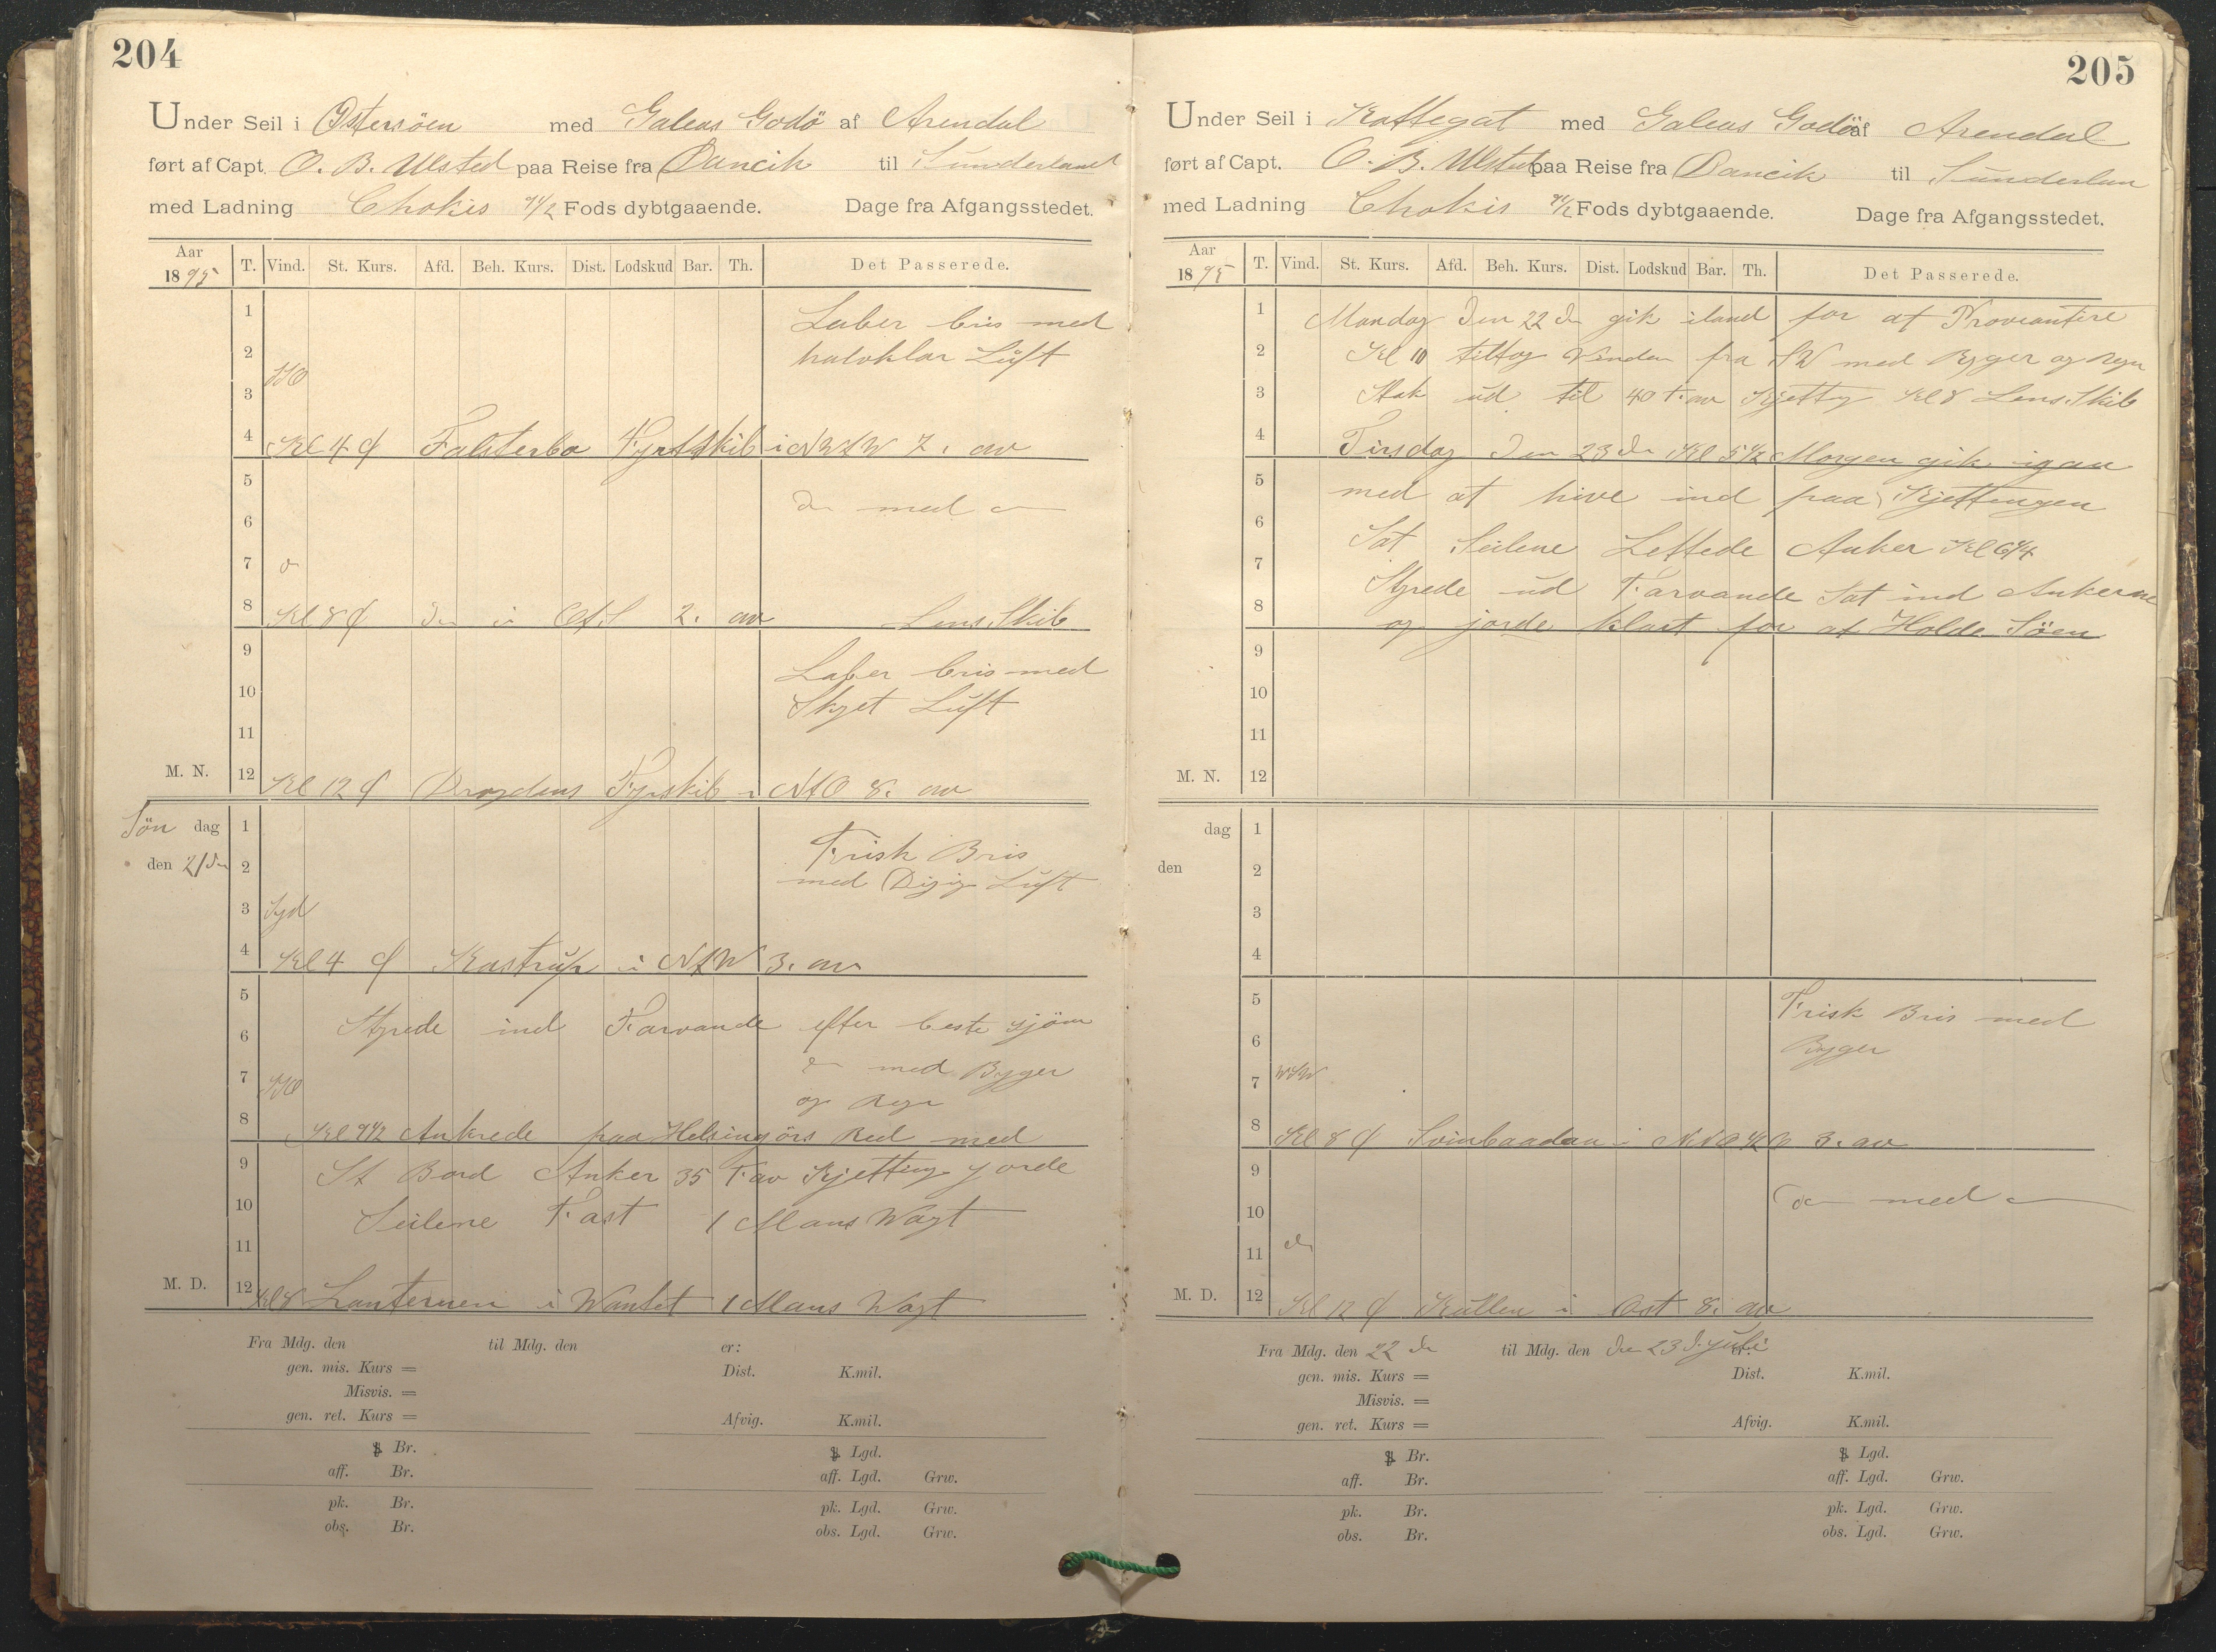 204
Under Seil i Østersöen med Galeas Godø af Arendal
ført af Capt. O. B. Ulsted paa Reise fra Dancik til Sunderland
med Ladning Chokis 9 1/2 Fods dybtgaaende. Dage fra Afgangsstedet.
Aar 1895 T. Vind. St. Kurs. Afd. Beh. Kurs. Dist. Lodskud Bar. Th. Det Passerede.
1 Laber bris med
2 halvklar Luft
SSO
3
4 Kl 4 Falsterbo Fyrskib i NWtW 7. av
5
6 do med do
7 do
8 Kl 8 do i OtS 2. av Lens Skib
9 Laber bris med
10 Skyet Luft
11
M. N. 12 Kl 12 Drogdens Fyrskib i NtO 8. av
Søn dag 1 Frisk Bris
den 21de 2 med Disig Luft
3 Syd
4 Kl 4 Kastrup i NtW 3. av
5
6 Styrede ind Farvande efter beste sjøn
7 SSO do med Byger
og Regn
8 Kl 9 1/2 Ankrede paa Helsingörs Red med
9 St Bord Anker 35 Fav Kjetting jorde
10 Seilene Fast 1 Mans Vagt
11
M. D. 12 Kl 8 Lanternen i Wantet 1 Mans Vagt
Fra Mdg. den til Mdg. den er:
gen. mis. Kurs = Dist. K.mil.
Misvis. =
gen. ret. Kurs = Afvig. K.mil.
Br. Lgd.
aff. Br. aff. Lgd. Grw.
pk. Br. pk. Lgd. Grw.
obs. Br. obs. Lgd. Grw.
205
Under Seil i Kattegat med Galeas Godø af Arendal
ført af Capt. O. B. Ulsted paa Reise fra Dancik til Sunderlan
med Ladning Chokis 9 1/2 Fods dybtgaaende. Dage fra Afgangsstedet.
Aar 1895 T. Vind. St. Kurs. Afd. Beh. Kurs. Dist. Lodskud Bar. Th. Det Passerede.
1 Mandag den 22de gik iland for at Proviantire
2 Kl 10 tiltog Vinden fra SW med Byger og Regn
3 Stak ud til 40 F. av Kjetty Kl 8 Lens Skib
4 Tirsdag den 23de Kl 5 1/2 Morgen gik igan
5 med at hive ind paa Kjettingen
6 Sat Seilene Lettede Anker Kl 6 1/4
7
8 Styrede ud Farvande Sat ind Ankerne
og jorde klart for at Holde Söen
9
10
11
M. N. 12
dag 1
den 2
3
4
5 Frisk Bris med
6 Byger
7 WSW
8 Kl 8 Svinbaadan i NNO 1/2 O 3. av
9
10 do med do
11 do
M. D. 12 Kl 12 Kullen i Ost 8. av
Fra Mdg. den 22 de til Mdg. den den 23 d. juli er:
gen. mis. Kurs = Dist. K.mil.
Misvis. =
gen. ret. Kurs = Afvig. K.mil.
Br. Lgd.
aff. Br. aff. Lgd. Grw.
pk. Br. pk. Lgd. Grw.
obs. Br. obs. Lgd. Grw.